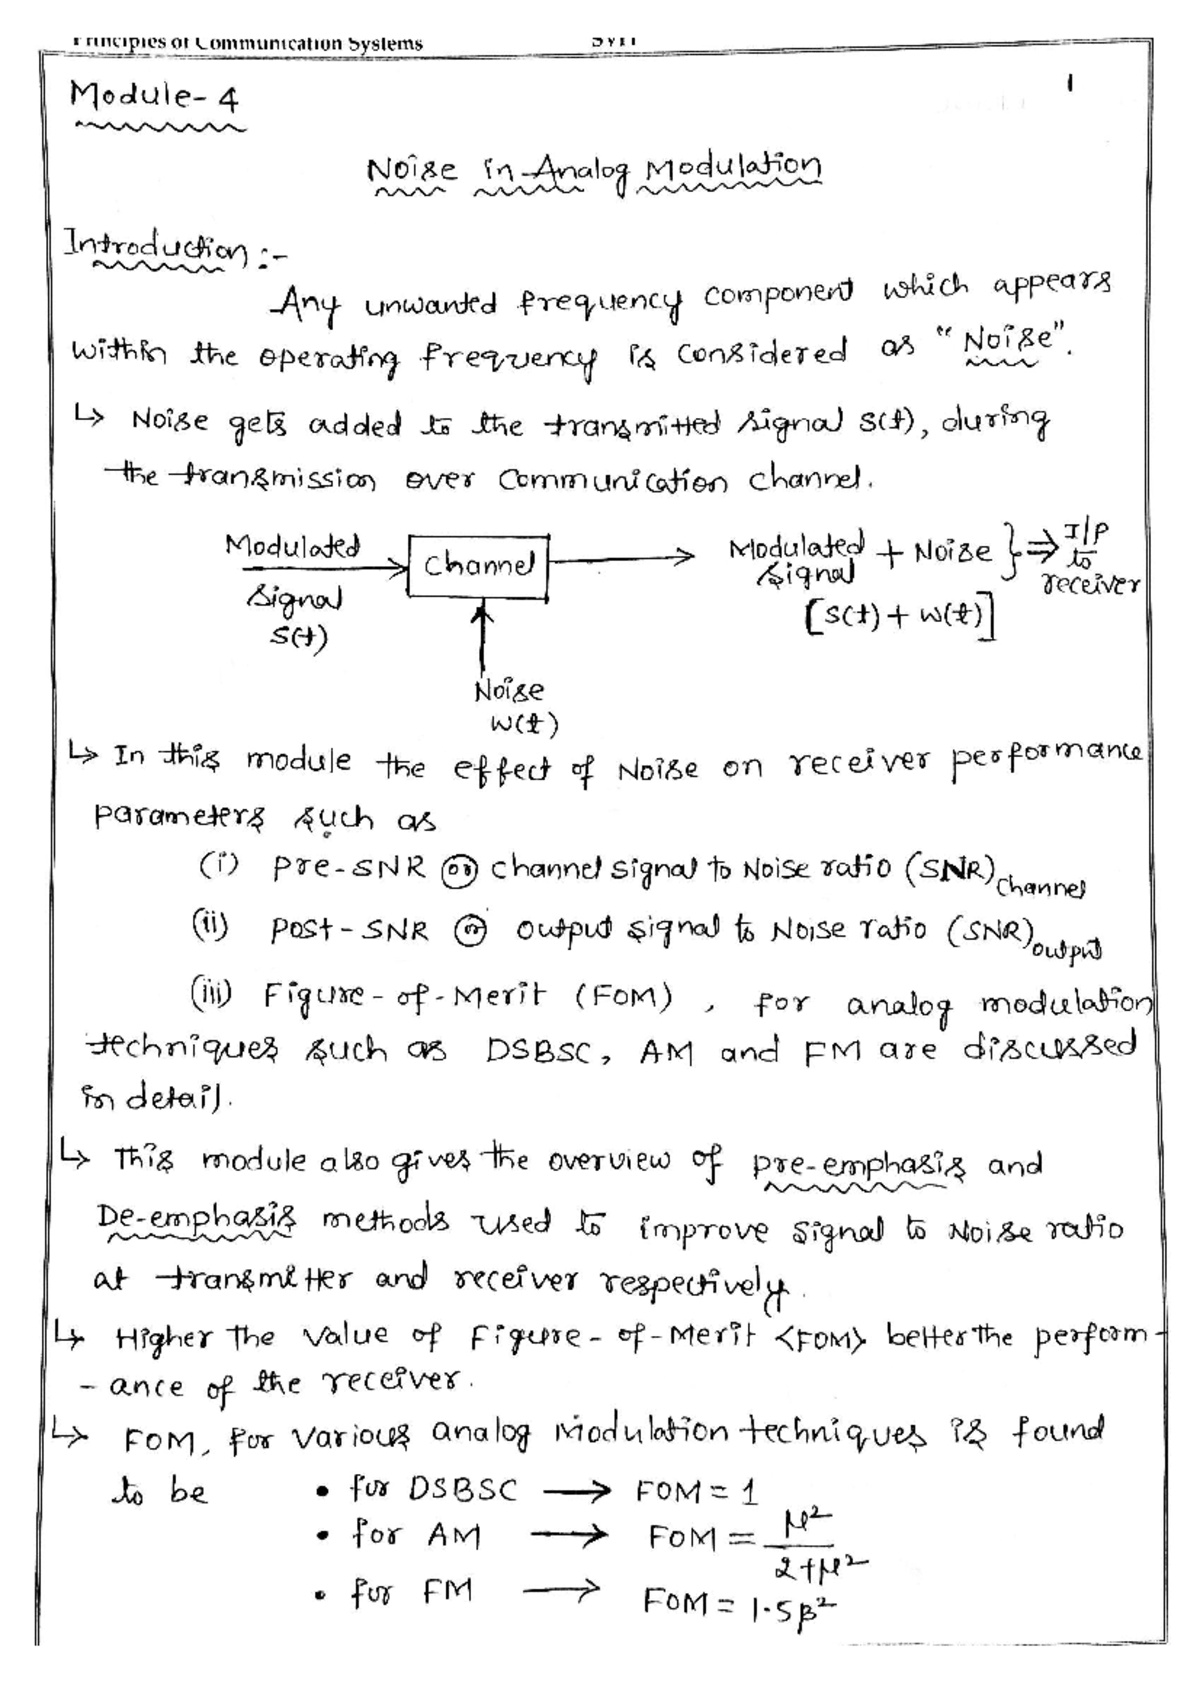 Principles of Communication Systems
1
Module-4
Noise in Analog Modulation
Introduction :-
Any unwanted frequency component which appears
within the operating frequency is considered as "Noise".
↳ Noise gets added to the transmitted signal s(t), during
the transmission over communication channel.
Modulated
Signal
s(t)
Channel
Noise
w(t)
Modulated
signal + Noise } ⇒ I/P
to
receiver
[s(t) + w(t)]
↳ In this module the effect of Noise on receiver performance
parameters such as
(i) Pre-SNR or channel signal to Noise ratio (SNR)channel
(ii) Post-SNR or output signal to Noise ratio (SNR)output
(iii) Figure-of-Merit (FOM), for analog modulation
techniques such as DSBSC, AM and FM are discussed
in detail.
↳ This module also gives the overview of pre-emphasis and
De-emphasis methods used to improve signal to Noise ratio
at transmitter and receiver respectively.
↳ Higher the value of Figure-of-Merit <FOM> better the perform-
-ance of the receiver.
↳ FOM, for various analog modulation techniques is found
to be • for DSBSC → FOM = 1
• for AM → FOM = μ²/2+μ²
• for FM → FOM = 1.5β²